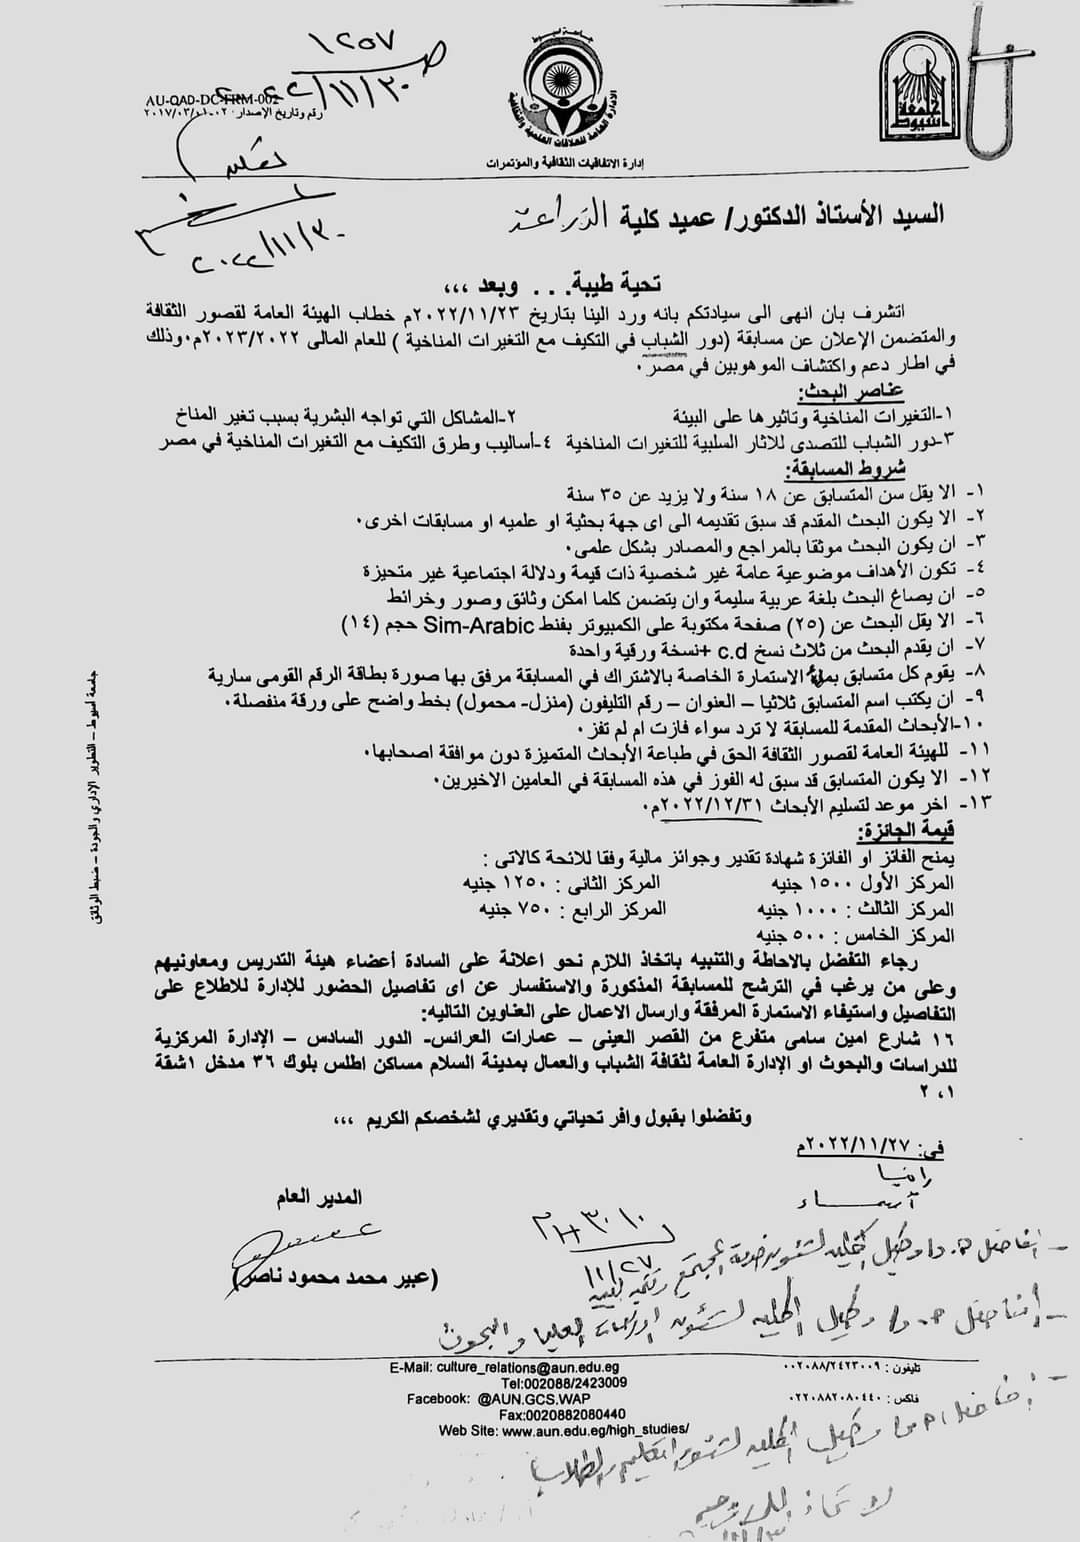 ١٢٥٧
٢٠٢٢/١١/٣٠
AU-QAD-DC-FRM-002
جامعة أسيوط
الإدارة العامة للعلاقات العلمية والثقافية
جامعة أسيوط
إدارة الاتفاقيات الثقافية والمؤتمرات
٢٠٢٢/١١/٣٠
السيد الأستاذ الدكتور/ عميد كلية الزراعة
تحية طيبة. . . وبعد ،،،
اتشرف بان انهى الى سيادتكم بانه ورد الينا بتاريخ ٢٠٢٢/١١/٢٣م خطاب الهيئة العامة لقصور الثقافة
والمتضمن الإعلان عن مسابقة (دور الشباب في التكيف مع التغيرات المناخية ) للعام المالى ٢٠٢٣/٢٠٢٢م٠وذلك
في اطار دعم واكتشاف الموهوبين في مصر٠
عناصر البحث:
١-التغيرات المناخية وتاثيرها على البيئة ٢-المشاكل التي تواجه البشرية بسبب تغير المناخ
٣-دور الشباب للتصدى للاثار السلبية للتغيرات المناخية ٤-أساليب وطرق التكيف مع التغيرات المناخية في مصر
شروط المسابقة:
١- الا يقل سن المتسابق عن ١٨ سنة ولا يزيد عن ٣٥ سنة
٢- الا يكون البحث المقدم قد سبق تقديمه الى اى جهة بحثية او علميه او مسابقات اخرى٠
٣- ان يكون البحث موثقا بالمراجع والمصادر بشكل علمى٠
٤- تكون الأهداف موضوعية عامة غير شخصية ذات قيمة ودلالة اجتماعية غير متحيزة
٥- ان يصاغ البحث بلغة عربية سليمة وان يتضمن كلما امكن وثائق وصور وخرائط
٦- الا يقل البحث عن (٢٥) صفحة مكتوبة على الكمبيوتر بفنط Sim-Arabic حجم (١٤)
٧- ان يقدم البحث من ثلاث نسخ c.d +نسخة ورقية واحدة
٨- يقوم كل متسابق بملئ الاستمارة الخاصة بالاشتراك في المسابقة مرفق بها صورة بطاقة الرقم القومى سارية
٩- ان يكتب اسم المتسابق ثلاثيا – العنوان – رقم التليفون (منزل- محمول) بخط واضح على ورقة منفصلة٠
١٠-الأبحاث المقدمة للمسابقة لا ترد سواء فازت ام لم تفز٠
١١- للهيئة العامة لقصور الثقافة الحق في طباعة الأبحاث المتميزة دون موافقة اصحابها٠
١٢- الا يكون المتسابق قد سبق له الفوز في هذه المسابقة في العامين الاخيرين٠
١٣- اخر موعد لتسليم الأبحاث ٢٠٢٢/١٢/٣١م٠
قيمة الجائزة:
يمنح الفائز او الفائزة شهادة تقدير وجوائز مالية وفقا للائحة كالاتى :
المركز الأول ١٥٠٠ جنيه المركز الثانى : ١٢٥٠ جنيه
المركز الثالث : ١٠٠٠ جنيه المركز الرابع : ٧٥٠ جنيه
المركز الخامس : ٥٠٠ جنيه
رجاء التفضل بالاحاطة والتنبيه باتخاذ اللازم نحو اعلانة على السادة أعضاء هيئة التدريس ومعاونيهم
وعلى من يرغب في الترشح للمسابقة المذكورة والاستفسار عن اى تفاصيل الحضور للإدارة للاطلاع على
التفاصيل واستيفاء الاستمارة المرفقة وارسال الاعمال على العناوين التاليه:
١٦ شارع امين سامى متفرع من القصر العينى – عمارات العرائس- الدور السادس – الإدارة المركزية
للدراسات والبحوث او الإدارة العامة لثقافة الشباب والعمال بمدينة السلام مساكن اطلس بلوك ٣٦ مدخل ١شقة
١، ٢
وتفضلوا بقبول وافر تحياتي وتقديري لشخصكم الكريم ،،،
في: ٢٠٢٢/١١/٢٧م
رانيا
أسماء
المدير العام
(عبير محمد محمود ناصر)
١١/٢٧
- الفاضل أ.د/ وكيل الكلية لشئون خدمة المجتمع وتنمية البيئة
- الفاضل أ.د/ وكيل الكلية لشئون الدراسات العليا والبحوث
- الفاضل أ.د/ وكيل الكلية لشئون التعليم والطلاب
E-Mail: culture_relations@aun.edu.eg
Tel:002088/2423009
تليفون : ٠٠٢٠٨٨/٢٤٢٣٠٠٩
Facebook: @AUN.GCS.WAP
Fax:0020882080440
فاكس : ٠٢٢٠٨٨٢٠٨٠٤٤٠
Web Site: www.aun.edu.eg/high_studies/
جامعة أسيوط – التطوير الإداري والجودة – ضبط الوثائق